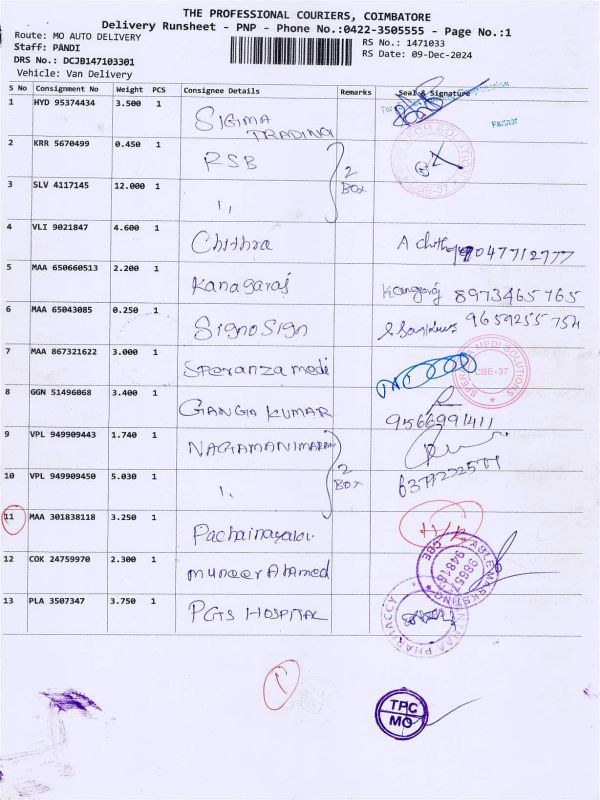 THE PROFESSIONAL COURIERS, COIMBATORE
Delivery Runsheet - PNP - Phone No.:0422-3505555 - Page No.:1
Route: MO AUTO DELIVERY
RS No.: 1471033
Staff: PANDI
RS Date: 09-Dec-2024
DRS No.: DCJB147103301
Vehicle: Van Delivery
S No Consignment No Weight PCS Consignee Details Remarks Seal & Signature
1 HYD 95374434 3.500 1 SIGIMA TRADING
Partner
2 KRR 5670499 0.450 1 RSB 2 BOX
3 SLV 4117145 12.000 1 ,,
CBE-37
4 VLI 9021847 4.600 1 Chithra 9047712777
5 MAA 650660513 2.200 1 Kanagaraj 8973465765
6 MAA 65043085 0.250 1 SignoSign 9659255754
7 MAA 867321622 3.000 1 Speranza medi
MEDI SOLUTIONS CBE-37
8 GGN 51496068 3.400 1 GANGA KUMAR 9566991411
9 VPL 949909443 1.740 1 NAGAMANIMARAN 2 BOX
10 VPL 949909450 5.030 1 ,,
11 MAA 301838118 3.250 1
12 COK 24759970 2.300 1 muneer Ahamed
MARKETING CBE
13 PLA 3507347 3.750 1 PGS HOSPITAL
PHARMACCY
TPC
MO